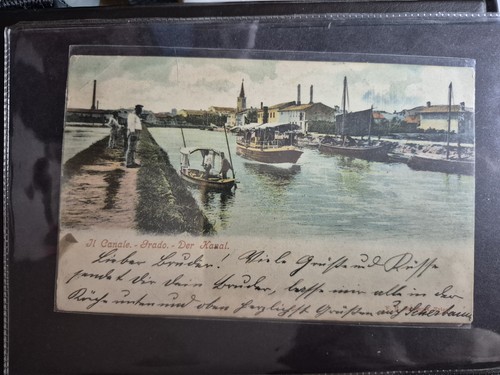 Il Canale. - Grado. - Der Kanal.
Lieber Bruder! Viele Grüße und Küsse
sendet Dir Dein Bruder, lasse mir alle in der
Küche unten und oben herzlichst Grüßen auf